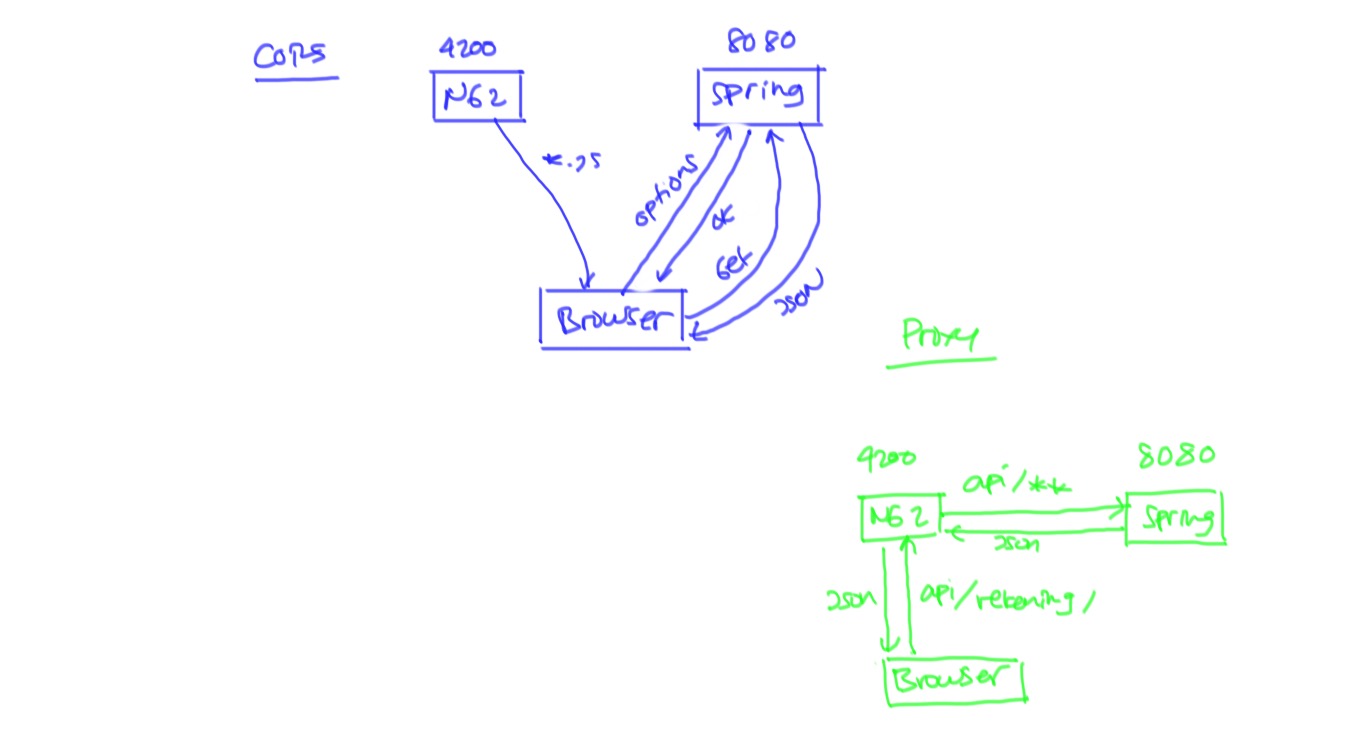 CORS
4200
8080
NG2
Spring
*.js
options
OK
Get
JSON
Browser
Proxy
4200
8080
api/**
NG2
Spring
JSON
JSON
api/rekening/
Browser